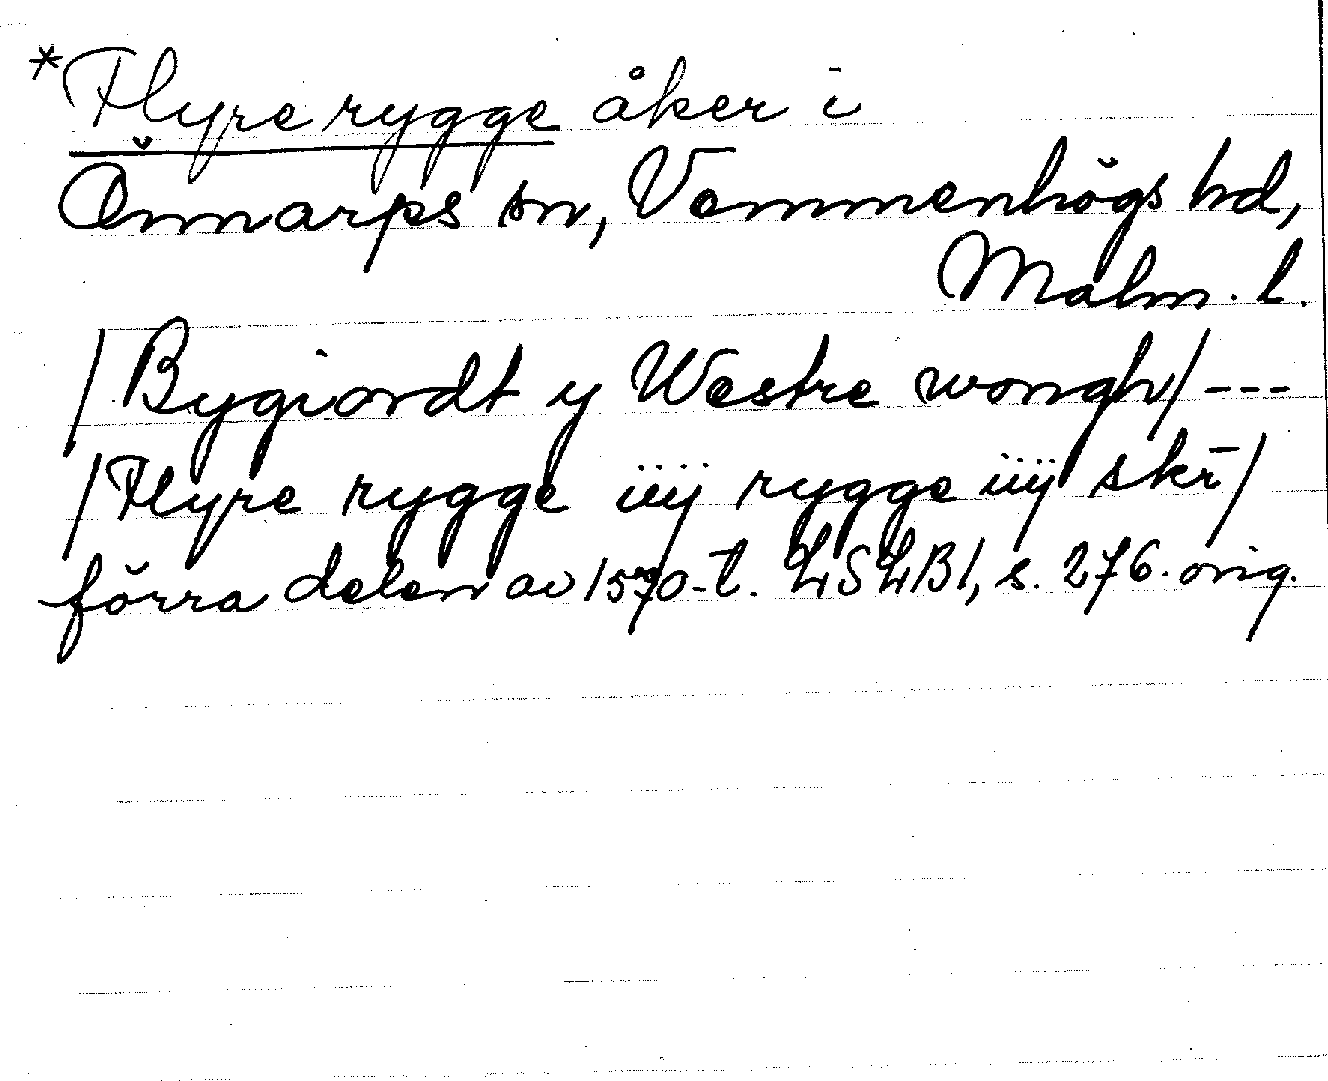 *Flyre rygge åker i
Önnarps sn, Vemmenhögs hd,
Malm. l.
/Bygiordt y Westre wongh/ ---
/Flyre rygge iiij rygge iiij skr/
förra delen av 1570-t. LSLB1, s. 276. orig.